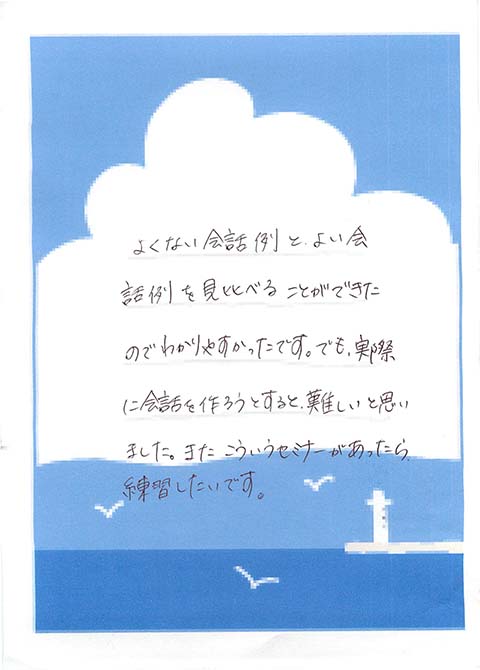 よくない会話例と、よい会
話例を見比べることができた
のでわかりやすかったです。でも、実際
に会話を作ろうとすると、難しいと思い
ました。また こういうセミナーがあったら、
練習したいです。